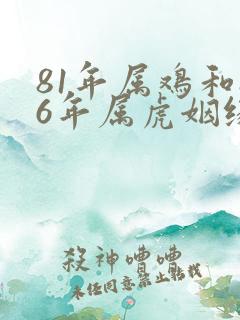 81年属鸡和
6年属虎姻缘
殺神嘈嘈
未经同意禁止转载